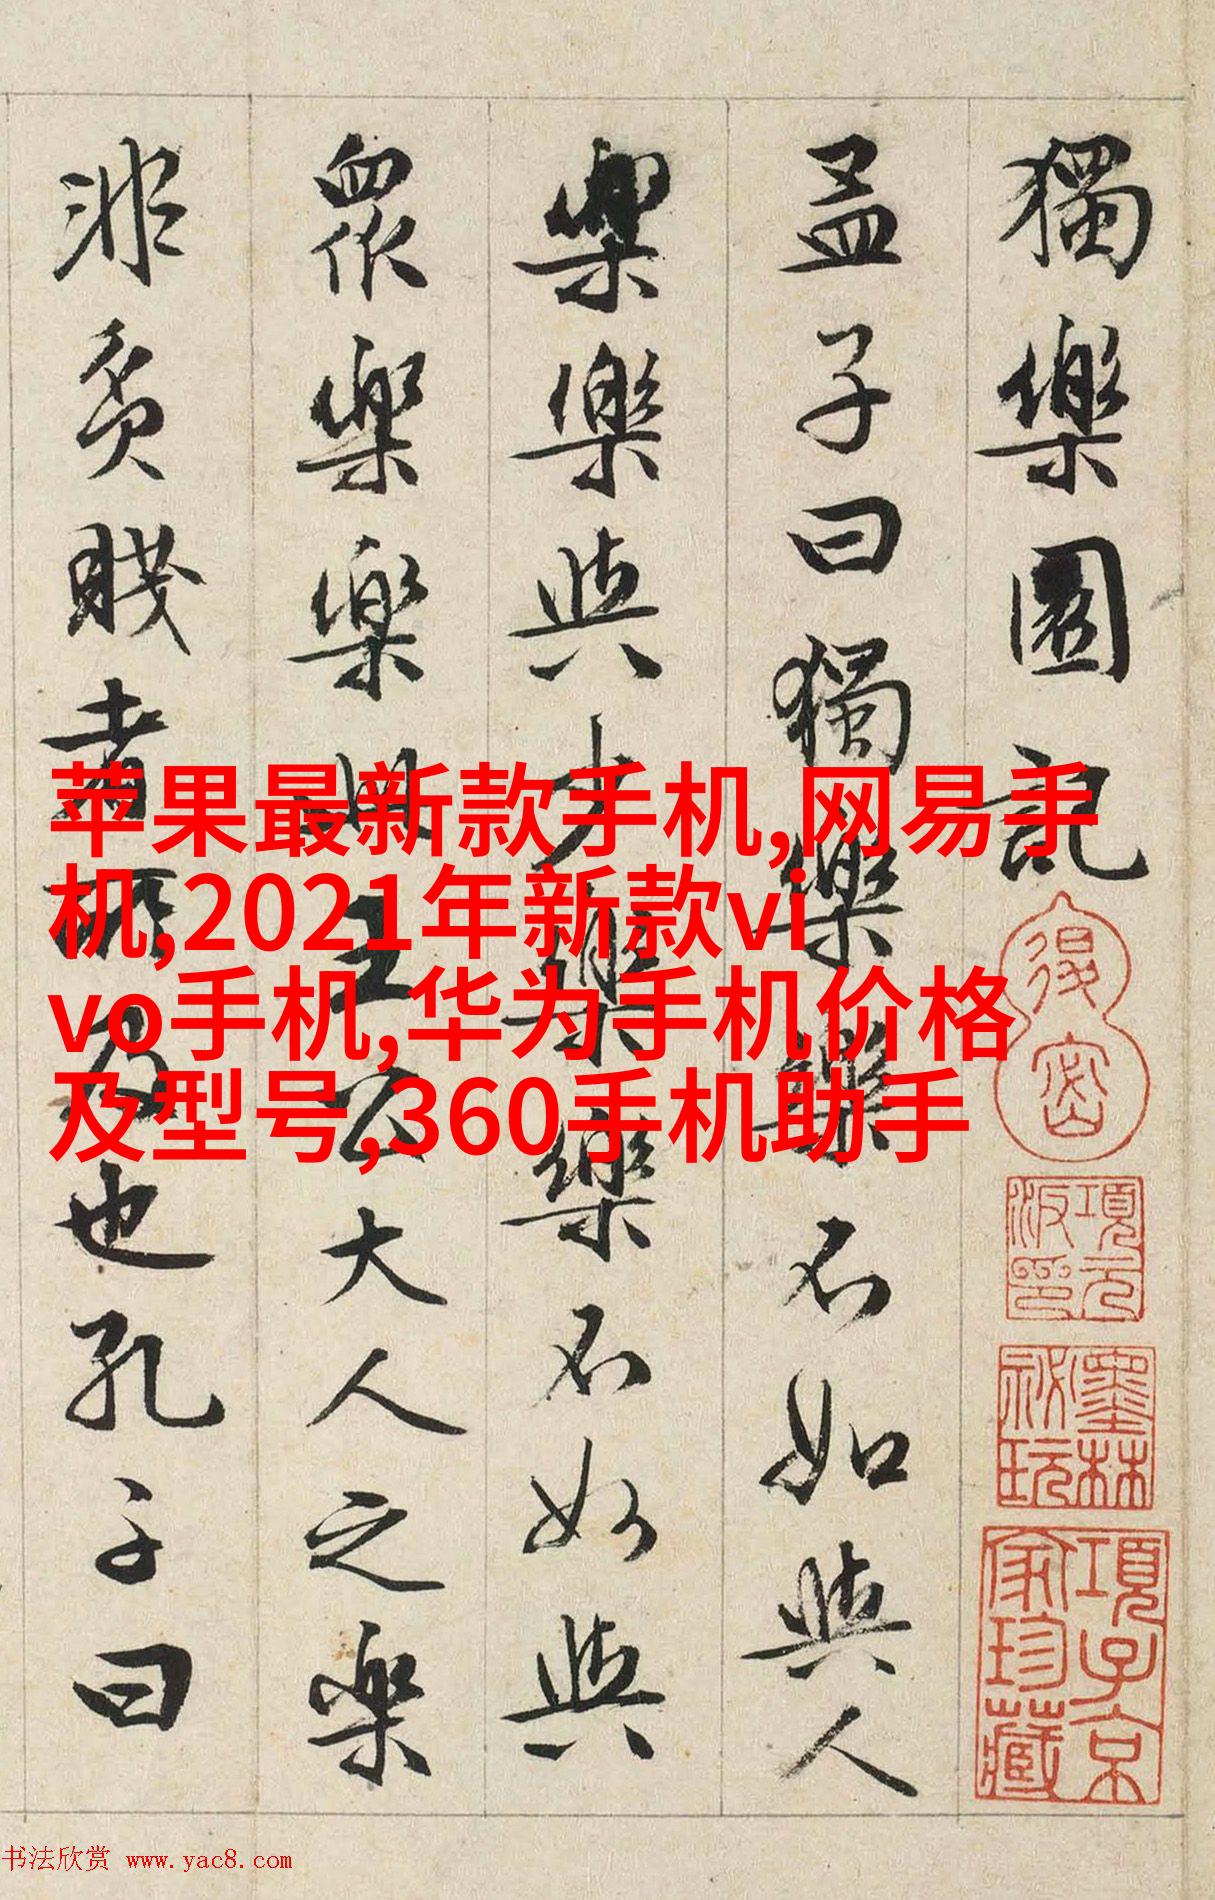 獨樂園記
孟子曰獨樂樂不如與人
樂樂與少樂樂不如與
眾樂樂此王公大人之樂
非貧賤者所及也孔子曰
項元汴印
墨林祕玩
項子京家珍藏
苹果最新款手机,网易手
机,2021年新款vi
vo手机,华为手机价格
及型号,360手机助手
书法欣赏 www.yac8.com